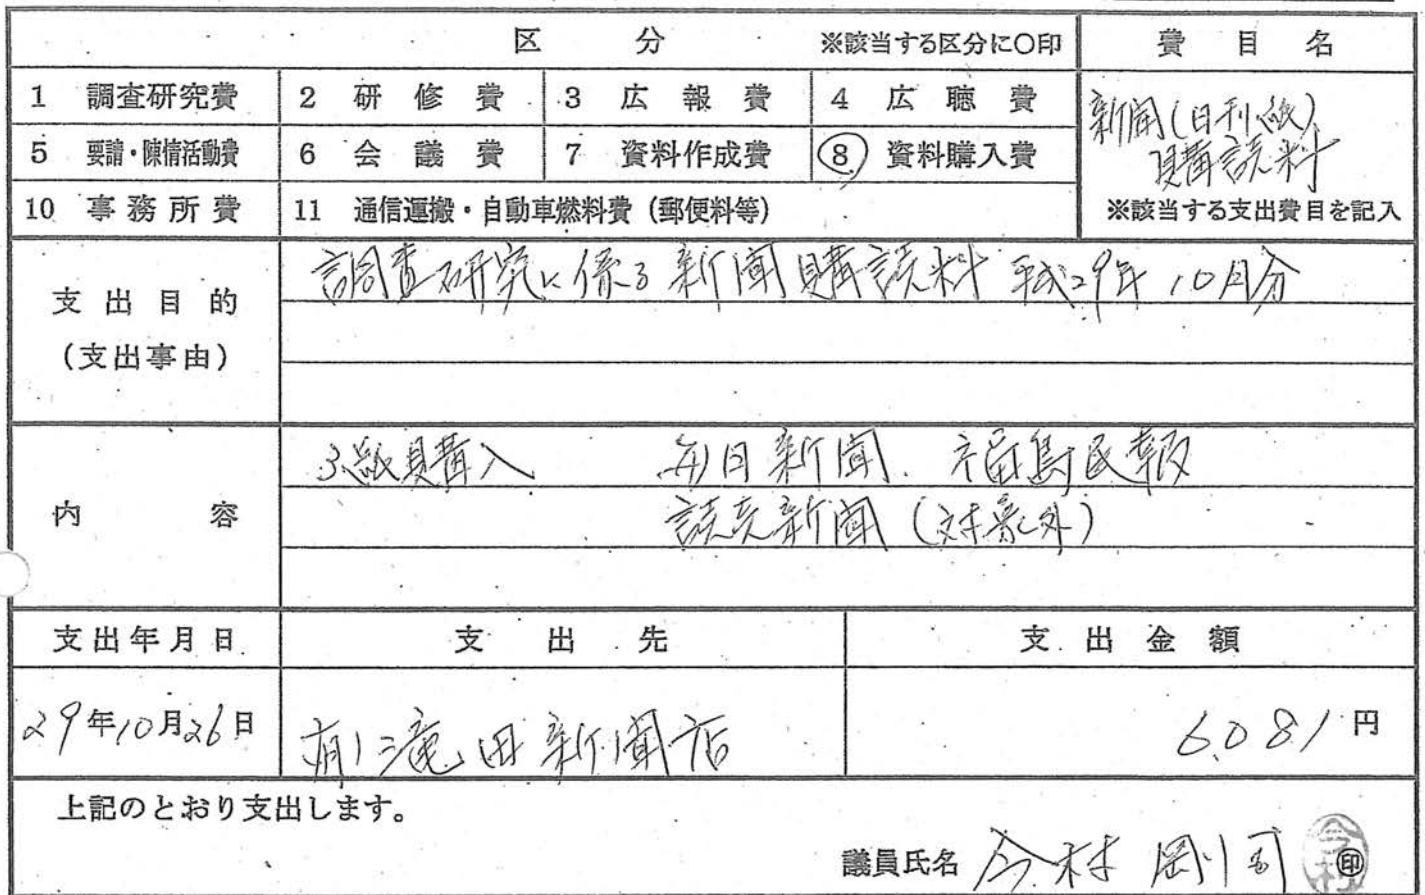 区 分 ※該当する区分に○印 費目名
1 調査研究費 2 研修費 3 広報費 4 広聴費
新聞(日刊紙)
購読料
5 要請・陳情活動費 6 会議費 7 資料作成費 8 資料購入費
10 事務所費 11 通信運搬・自動車燃料費(郵便料等)
※該当する支出費目を記入
支出目的
(支出事由)
調査研究に係る新聞購読料 平成29年10月分
内容
3紙購入 毎日新聞、福島民報
読売新聞(対象外)
支出年月日 支出先 支出金額
29年10月26日 (有)滝田新聞店 6,081円
上記のとおり支出します。
議員氏名 今村剛司 印
今村